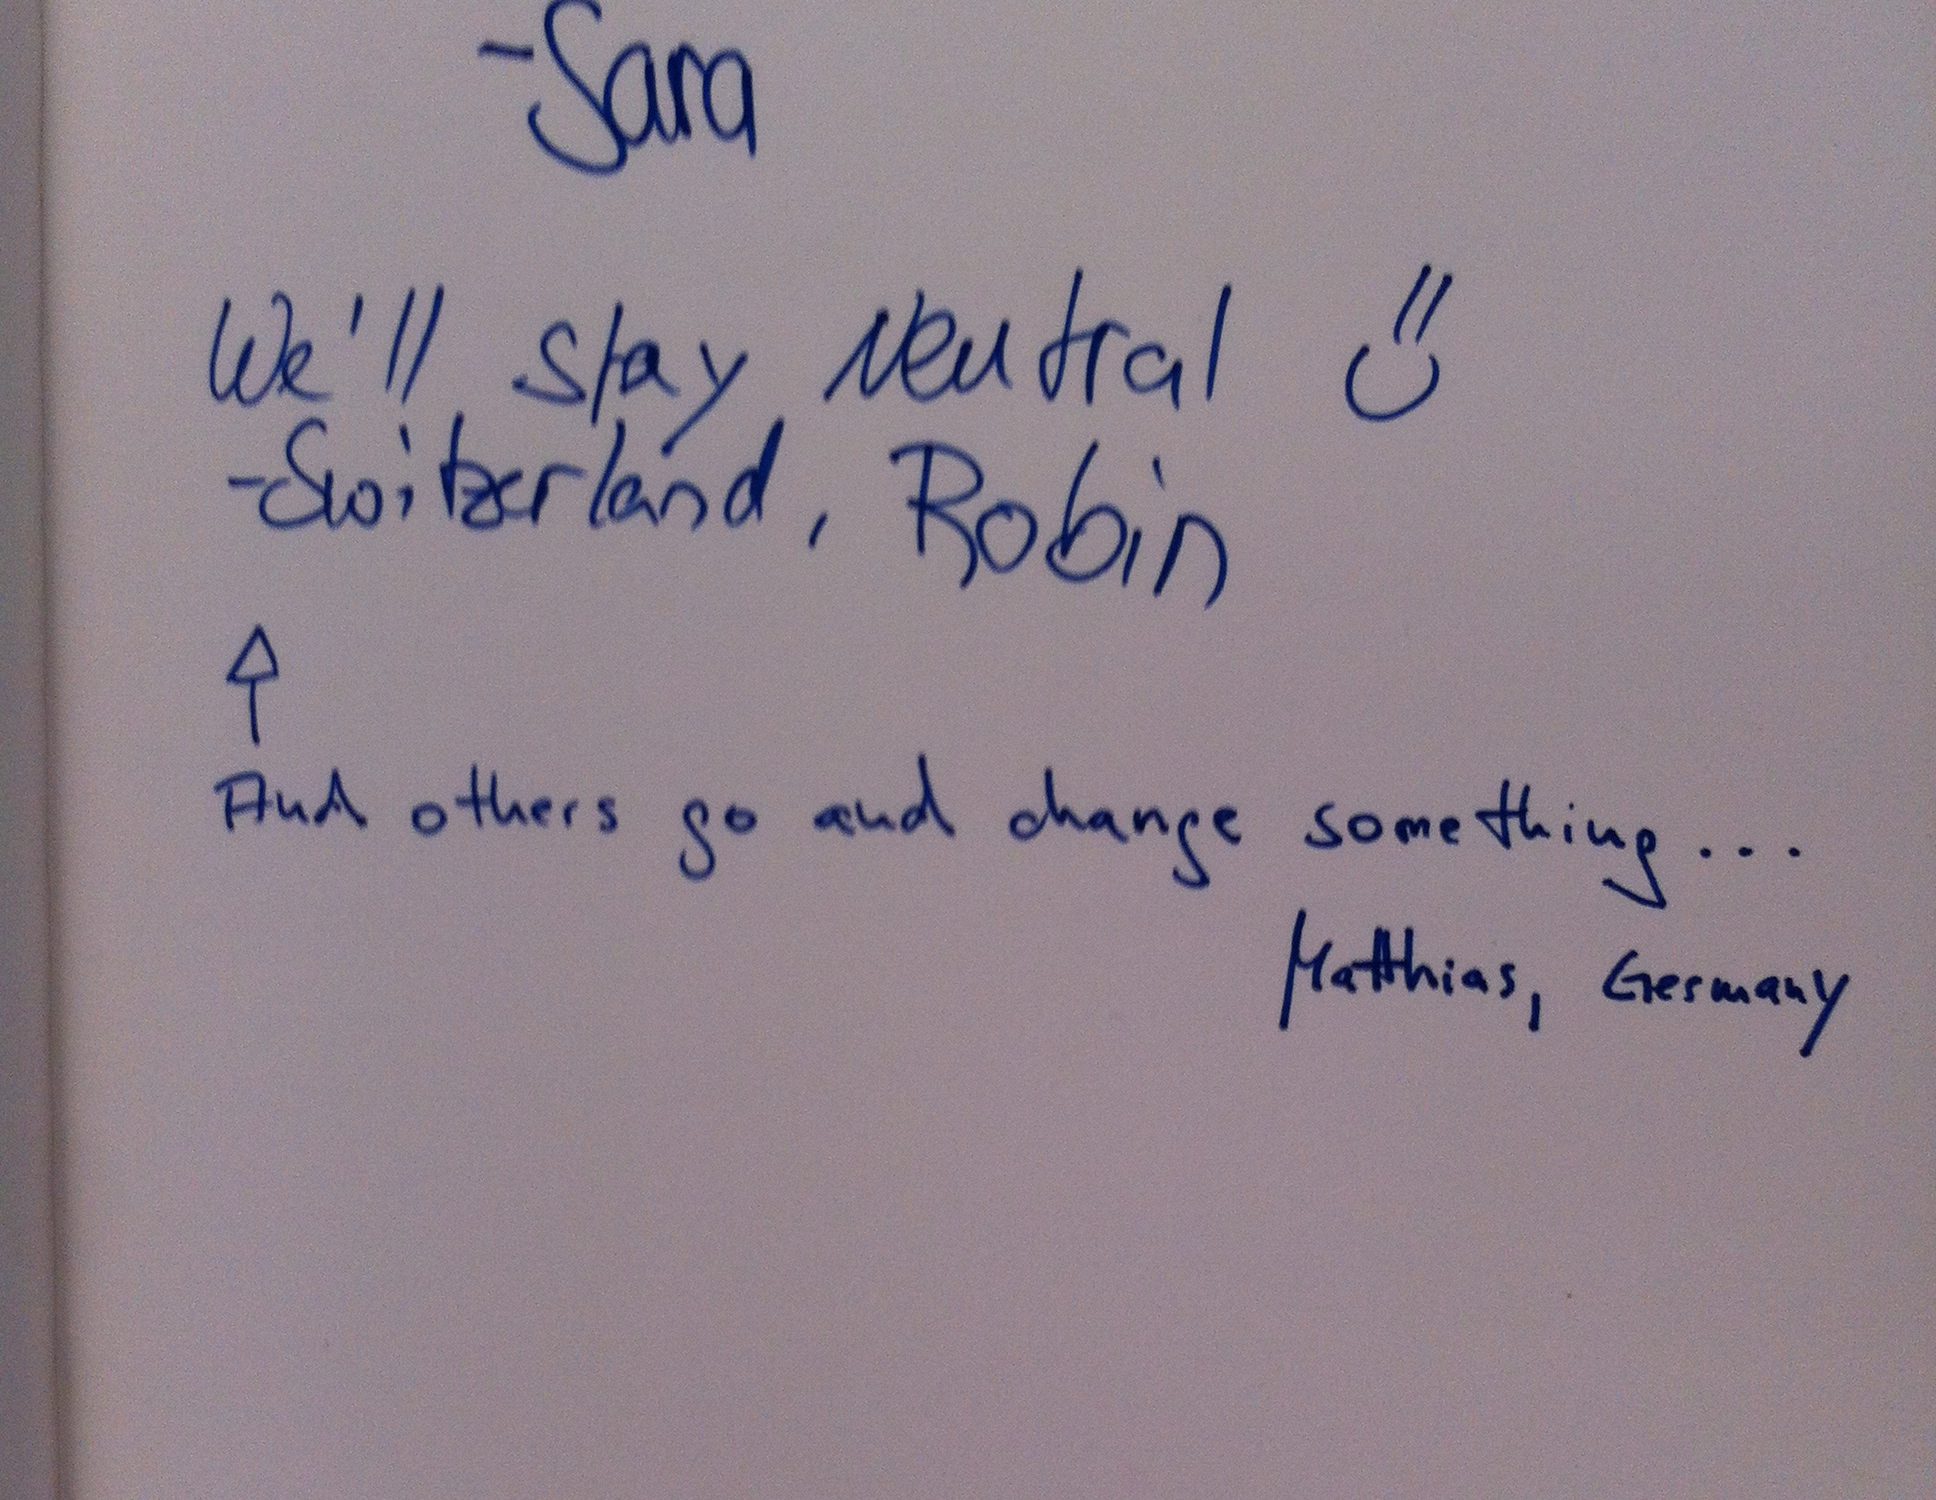 -Sara
We'll stay Neutral
-Switzerland, Robin
And others go and change something...
Matthias, Germany